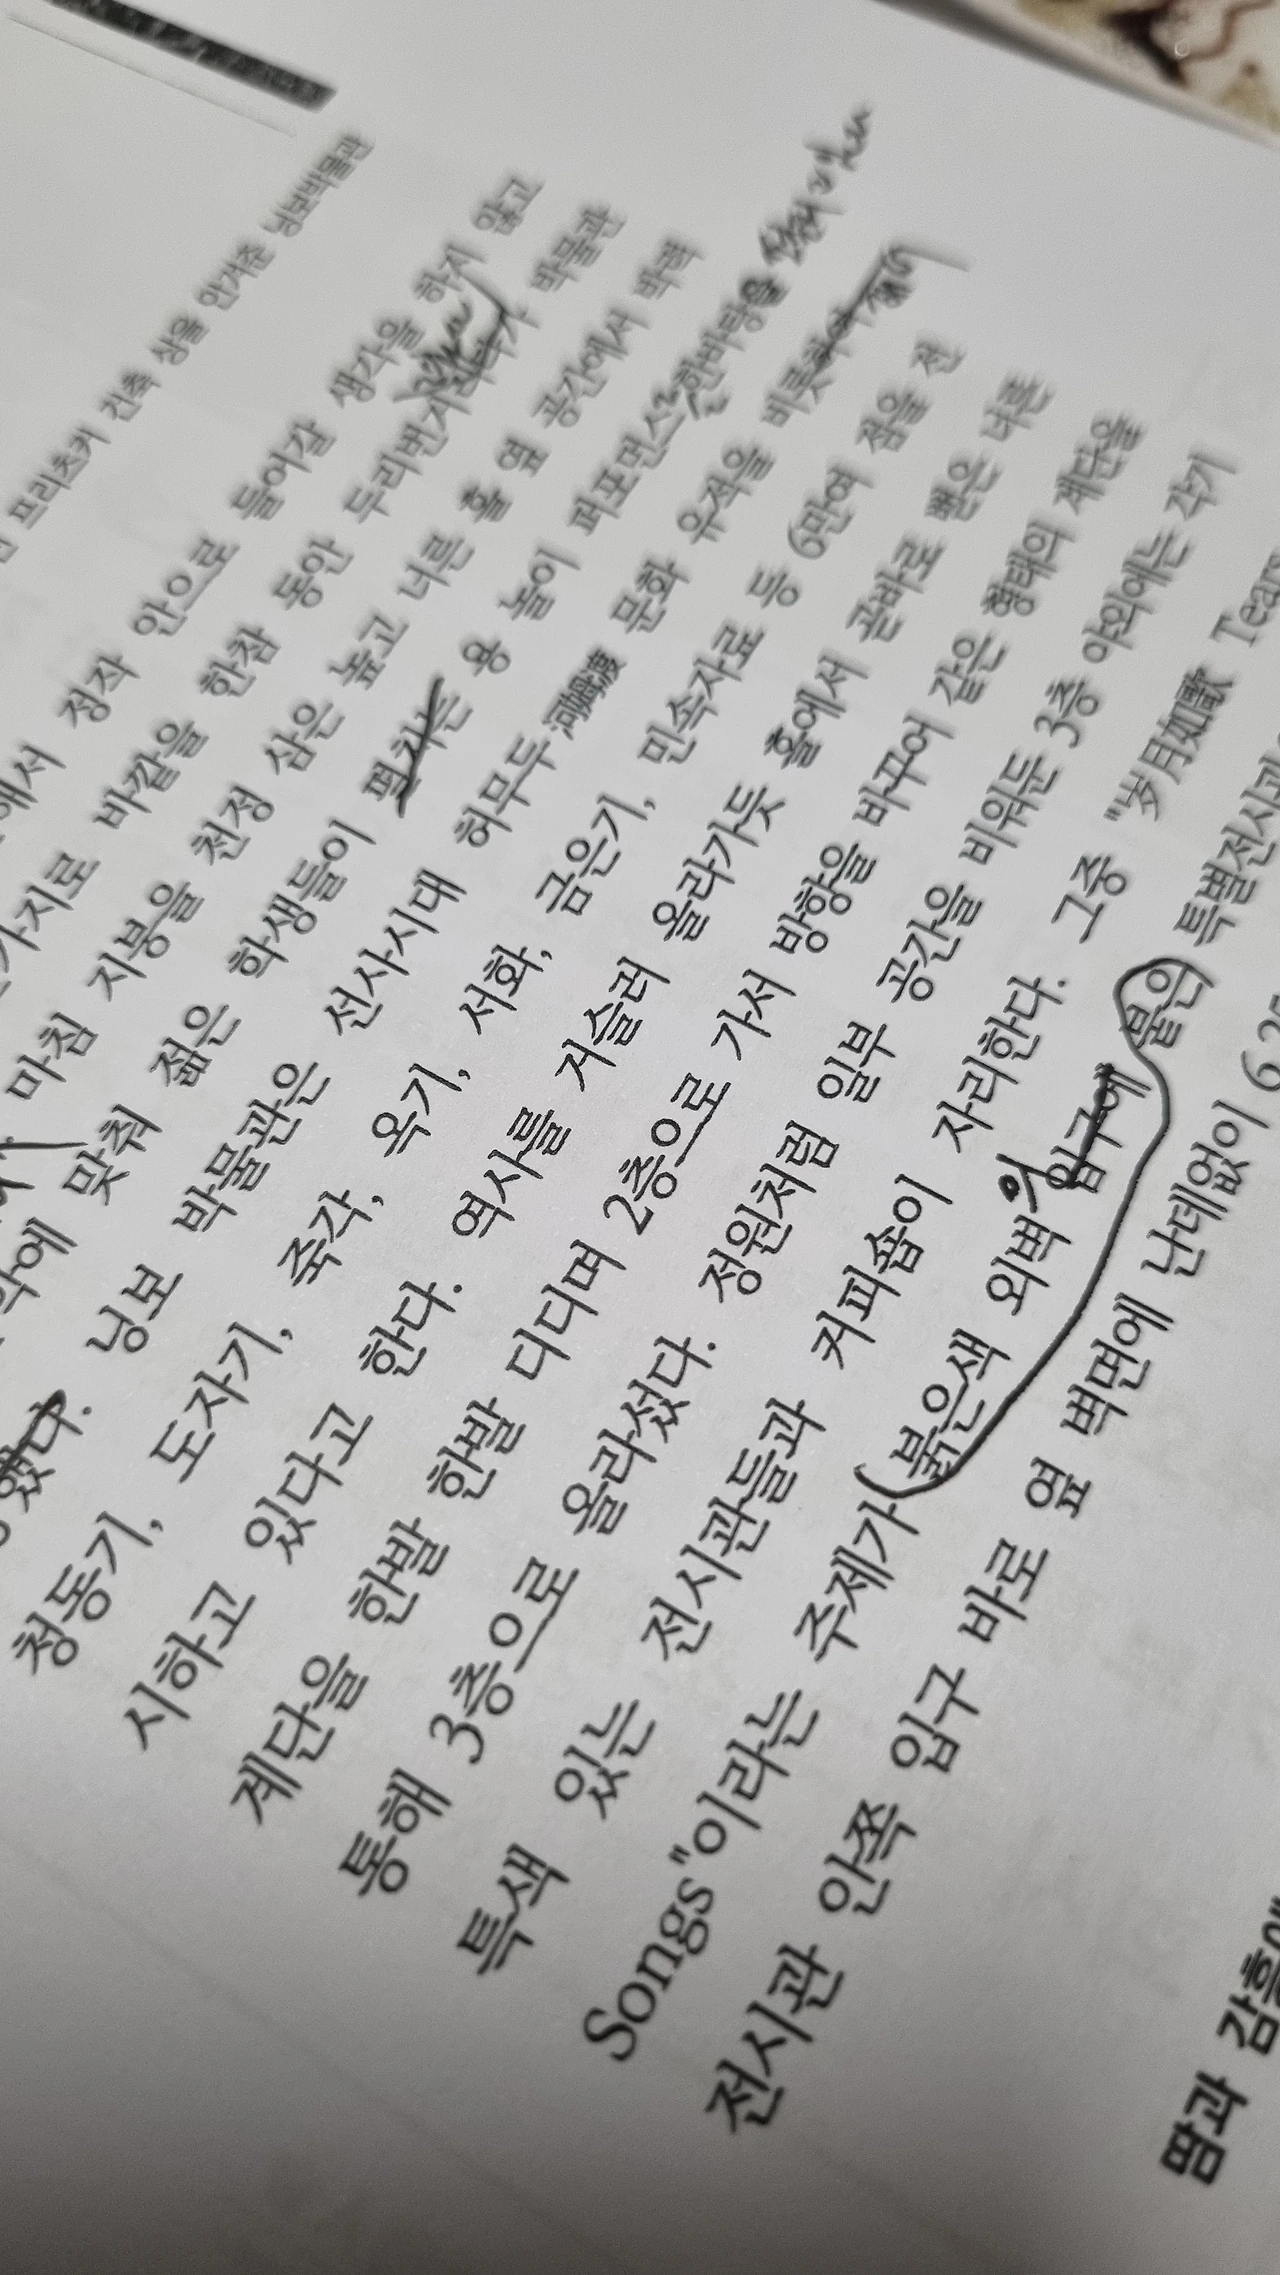 프리츠커 건축 상을 안겨준 닝보박물관
해서 정작 안으로 들어갈 생각을 하지 않고
가지로 바깥을 한참 동안 두리번거리다가 박물관
마침 지붕을 천정 삼은 높고 너른 홀 옆 공간에서 박력
맞춰 젊은 학생들이 펼치는 용 놀이 퍼포먼스 한바탕을
했다. 닝보 박물관은 선사시대 허무두 河姆渡 문화 유적을 비롯하여
청동기, 도자기, 죽각, 옥기, 서화, 금은기, 민속자료 등 6만여 점을 전
시하고 있다고 한다. 역사를 거슬러 올라가듯 홀에서 곧바로 뻗은 너른
계단을 한발 한발 디디며 2층으로 가서 방향을 바꾸어 같은 형태의 계단을
통해 3층으로 올라섰다. 정원처럼 일부 공간을 비워둔 3층 야외에는 각기
특색 있는 전시관들과 커피숍이 자리한다. 그중 "岁月如歌 Tears
Songs"이라는 주제가 붉은색 외벽 의 입구에 붙은 특별전시관
전시관 안쪽 입구 바로 옆 벽면에 난데없이 6.25
땀과 감흥